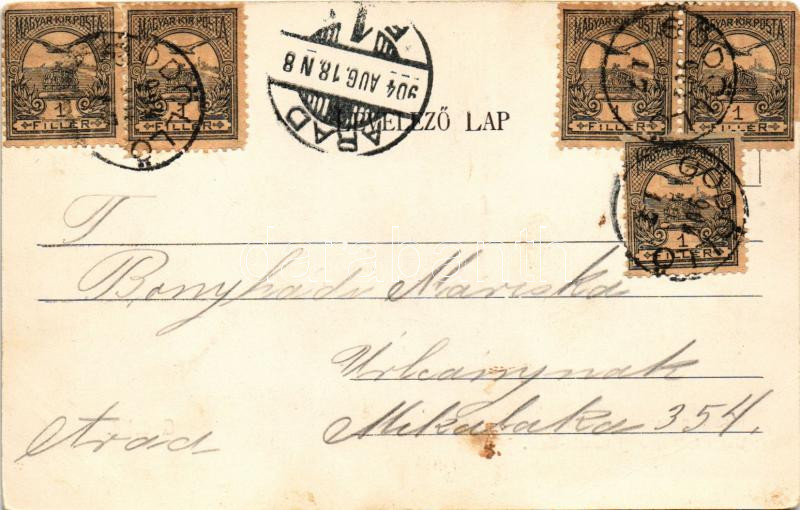 MAGYAR·KIR·POSTA MAGYAR·KIR·POSTA MAGYAR·KIR·POSTA MAGYAR·KIR·POSTA
1 1 1 1
FILLÉR FILLÉR FILLÉR FILLÉR
ARAD
904 AUG. 18. N 8
LEVELEZŐ LAP
1
FILLÉR
T
Bonyhádi Mariska
Úrleánynak
Arad Mikalaka 354.